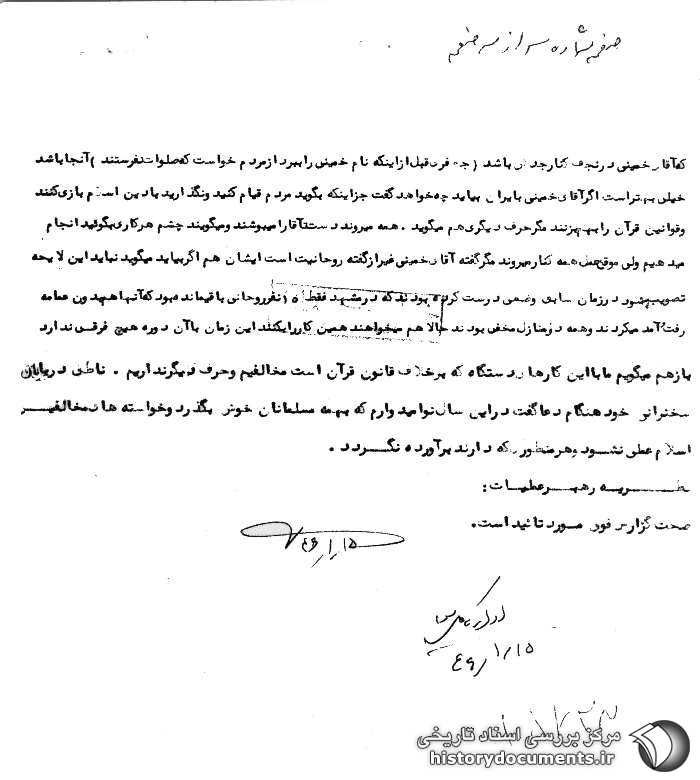 صفحه شماره سه از سه صفحه
که آقای خمینی در نجف کنار جدش باشد (جمعیت قبل از اینکه نام خمینی را ببرد از مردم خواست که صلوات نفرستند) آنجا باشد
خیلی بهتر است اگر آقای خمینی بایران بیاید چه خواهد گفت جز اینکه بگوید مردم قیام کنید ونگذارید با دین اسلام بازی کنند
وقوانین قرآن را بهم بزنند مگر حرف دیگری هم میگوید . همه میروند دست آقا را میبوسند و میگویند چشم هر کاری بگوئید انجام
میدهیم ولی موقع عمل همه کنار میروند مگر گفته آقای خمینی غیر از گفته روحانیت است ایشان هم اگر بیاید میگوید نباید این لایحه
تصویب بشود در زمان سابق وضعی درست کرده بودند که در مشهد فقط نفر روحانی باقیمانده بود که آنها هم بدون عمامه
رفت آمد میکردند وهمه در منازل مخفی بودند حالا هم میخواهند همین کار را بکنند این زمان با آن دوره هیچ فرقی ندارد
باز هم میگویم ما با این کارهای دستگاه که برخلاف قانون قرآن است مخالفیم وحرف دیگر نداریم . ناطق در پایان
سخنرانی خود هنگام دعا گفت در این سال نو امیدوارم که بهمه مسلمانان خوش بگذرد وخواسته های مخالفین
اسلام عملی نشود وهر منظوری که دارند برآورده نگردد .
نظریه رهبر عملیات :
صحت گزارش فوق مورد تائید است.
۴۶/۱/۱۵
۴۶/۱/۱۵
مرکز بررسی اسناد تاریخی
historydocuments.ir